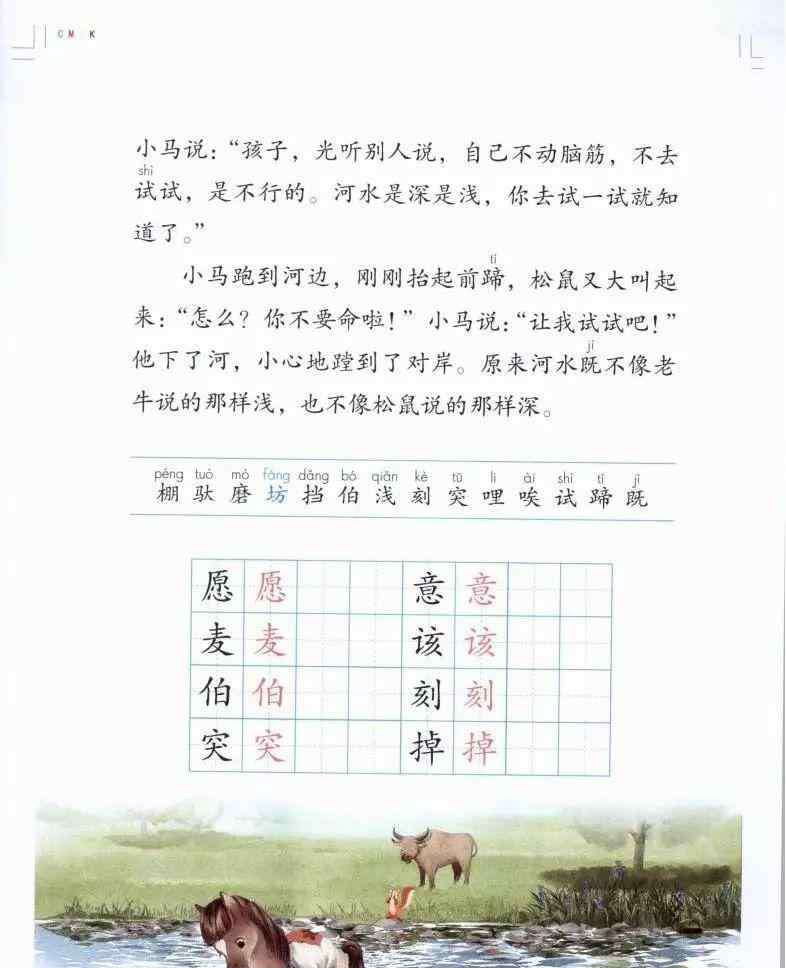 C M K
小马说：“孩子，光听别人说，自己不动脑筋，不去
shì
试试，是不行的。河水是深是浅，你去试一试就知
道了。”
tí
小马跑到河边，刚刚抬起前蹄，松鼠又大叫起
来：“怎么？你不要命啦！”小马说：“让我试试吧！”
jì
他下了河，小心地蹚到了对岸。原来河水既不像老
牛说的那样浅，也不像松鼠说的那样深。
péng tuó mò fáng dǎng bó qiǎn kè tū li ài shì tí jì
棚 驮 磨 坊 挡 伯 浅 刻 突 哩 唉 试 蹄 既
愿 愿 意 意
麦 麦 该 该
伯 伯 刻 刻
突 突 掉 掉